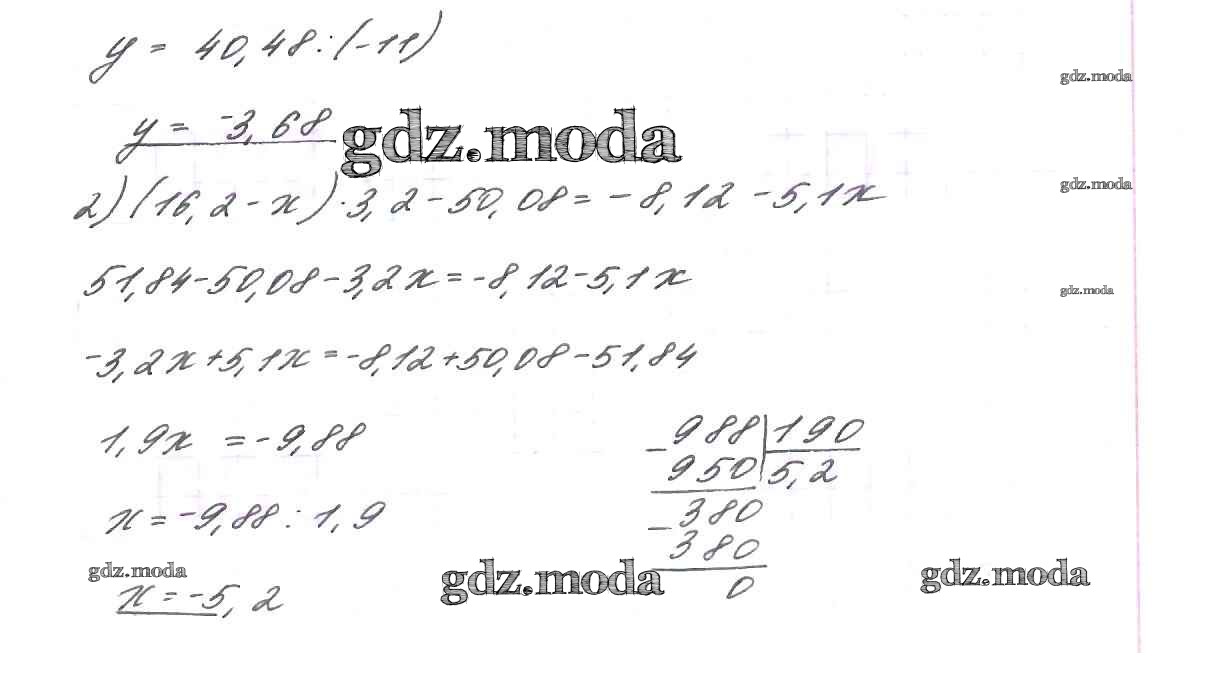 y = 40,48:(-11)
gdz.moda
y = -3,68
gdz.moda
2) (16,2-x)·3,2-50,08=-8,12-5,1x
gdz.moda
51,84-50,08-3,2x=-8,12-5,1x
gdz.moda
-3,2x+5,1x=-8,12+50,08-51,84
1,9x = -9,88
x=-9,88:1,9
x=-5,2
-988|190
950|5,2
-380
380
0
gdz.moda
gdz.moda
gdz.moda